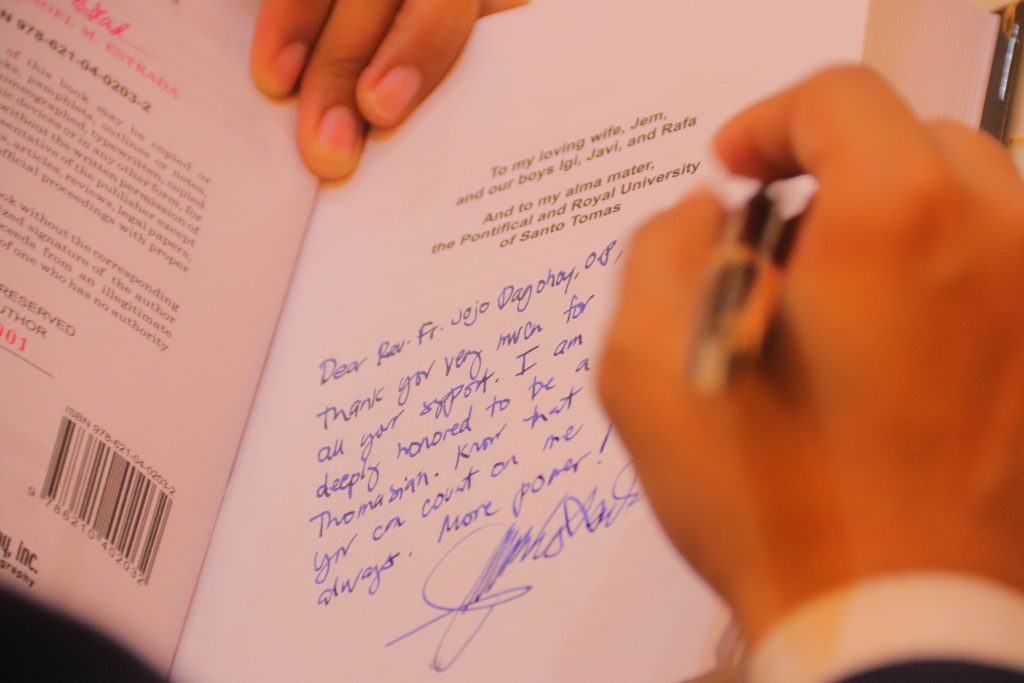 NOEL M. ESTRADA
N 978-621-04-0203-2
of this book may be
pamphlets, outlines or
mimeographed, typewritten, copied
devices or in any other form, for
without the written permission of
of the publisher except
articles, reviews, legal papers,
official proceedings with proper
without the corresponding
signature of the author
from an illegitimate
of one who has no authority
RESERVED
AUTHOR
001
ISBN 978-621-04-0203-2
9 786210 402032
inc.
To my loving wife, Jem,
and our boys Igi, Javi, and Rafa
And to my alma mater,
the Pontifical and Royal University
of Santo Tomas
Dear Rev. Fr. Jojo Dagohoy, O.P.,
Thank you very much for
all your support. I am
deeply honored to be a
Thomasian. Know that
you can count on me
always. More power!